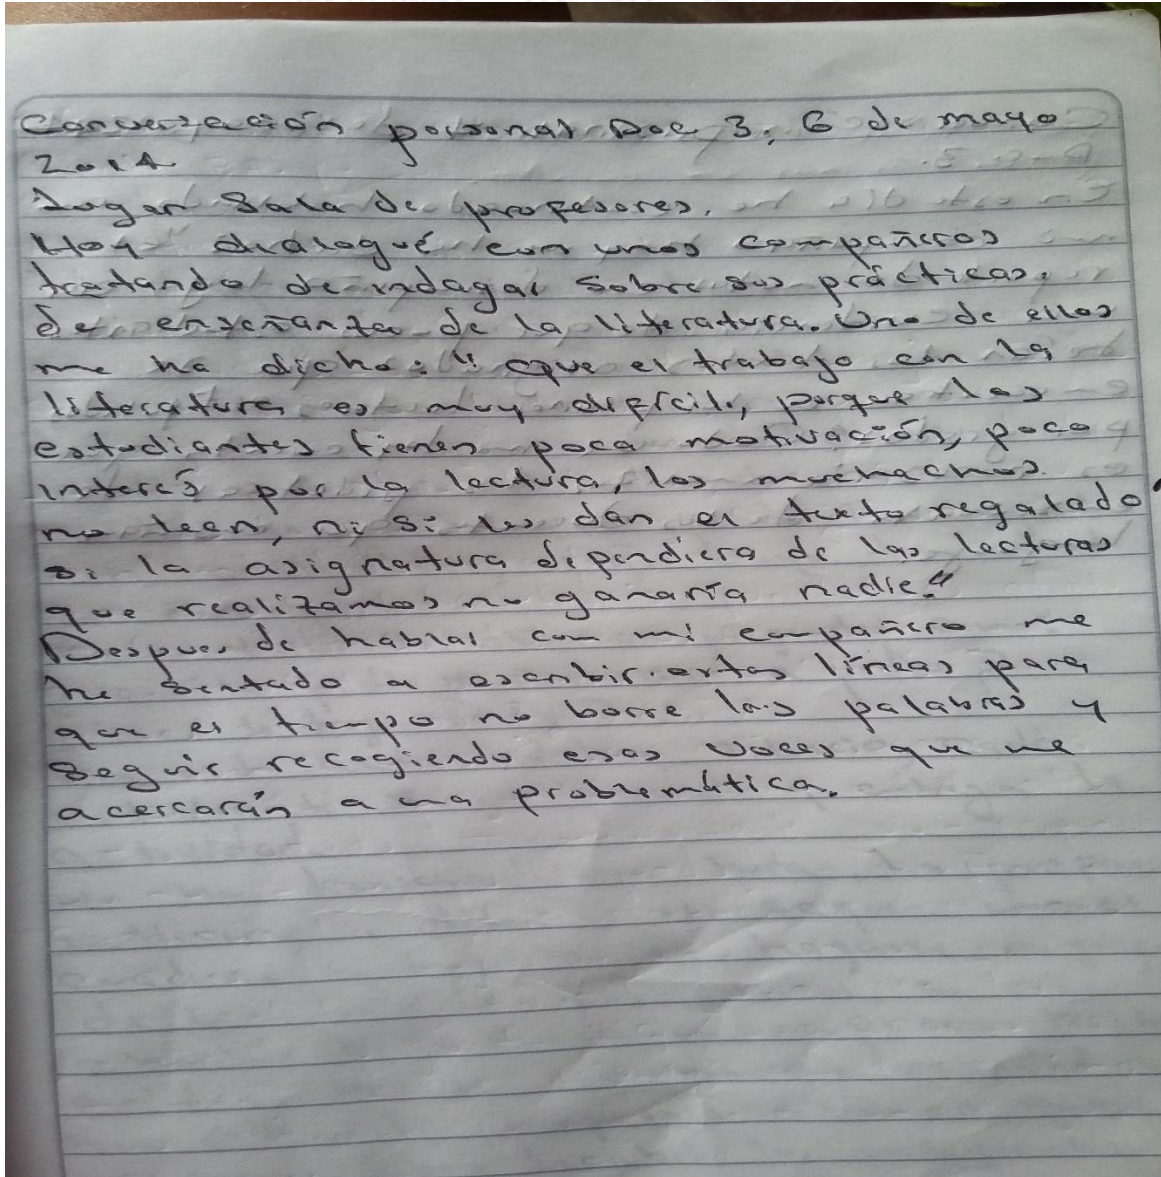 Conversación personal Doc 3, 6 de mayo
2014
Lugar Sala de profesores.
Hoy dialogué con unos compañeros
tratando de indagar sobre sus prácticas,
de enseñanza de la literatura. Uno de ellos
me ha dicho: "que el trabajo con la
literatura es muy difícil, porque los
estudiantes tienen poca motivación, poco
interés por la lectura, los muchachos
no leen, ni si les dan el texto regalado,
si la asignatura dependiera de las lecturas
que realizamos no ganaría nadie."
Despues de hablar con mi compañero me
he sentado a escribir estas líneas para
que el tiempo no borre las palabras y
seguir recogiendo esas voces que me
acercarán a una problemática.